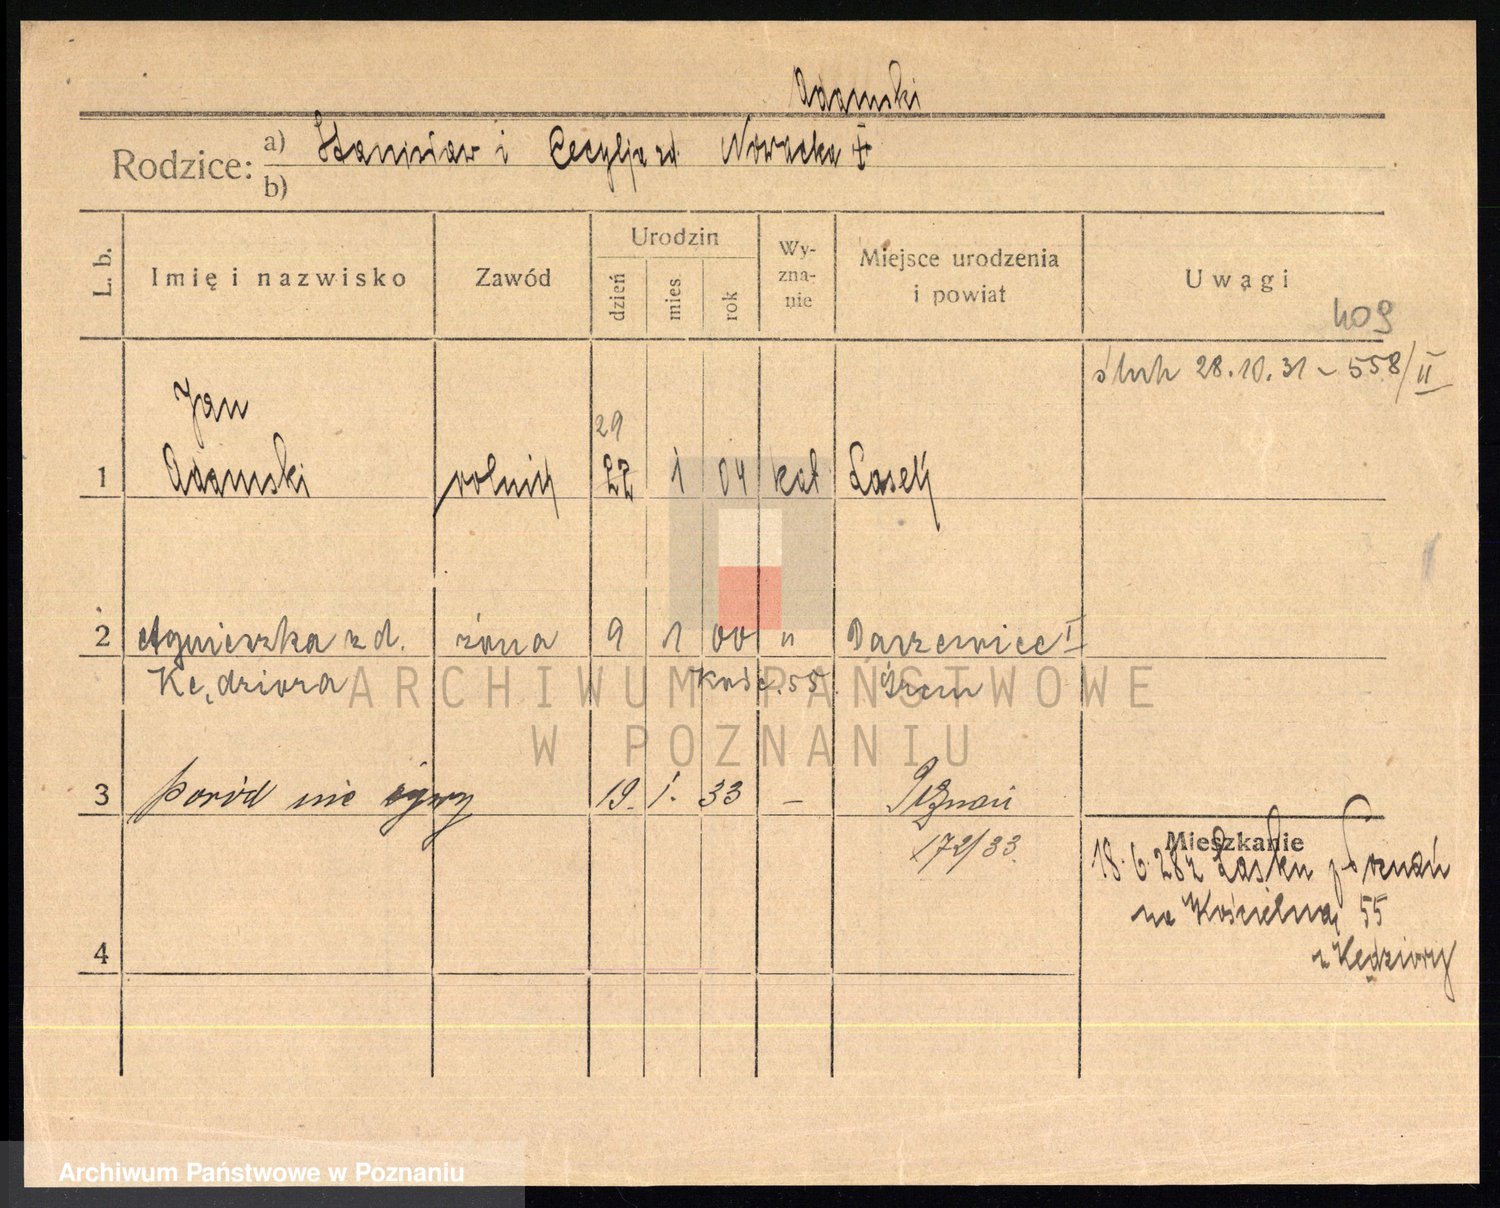 Adamski
Rodzice: a) Stanisław i Cecylja zd. Nowacka ‡
b)
L. b.
Imię i nazwisko
Zawód
Urodzin
dzień
mies
rok
Wy-
zna-
nie
Miejsce urodzenia
i powiat
Uwagi
409
ślub 28.10.31 - 558/II
Jan
29
1 Adamski rolnik 22 1 04 kat Lasek
2 Agnieszka z d. żona 9 1 00 " Daszewice I
Kędziora Kość. 55 Śrem
3 poród nie żywy 19. 1. 33 — Poznań
172/33.
Mieszkanie
18.6.28 z Lasku Poznań
na Kościelną 55
z Kędziory
4
ARCHIWUM PAŃSTWOWE
W POZNANIU
Archiwum Państwowe w Poznaniu